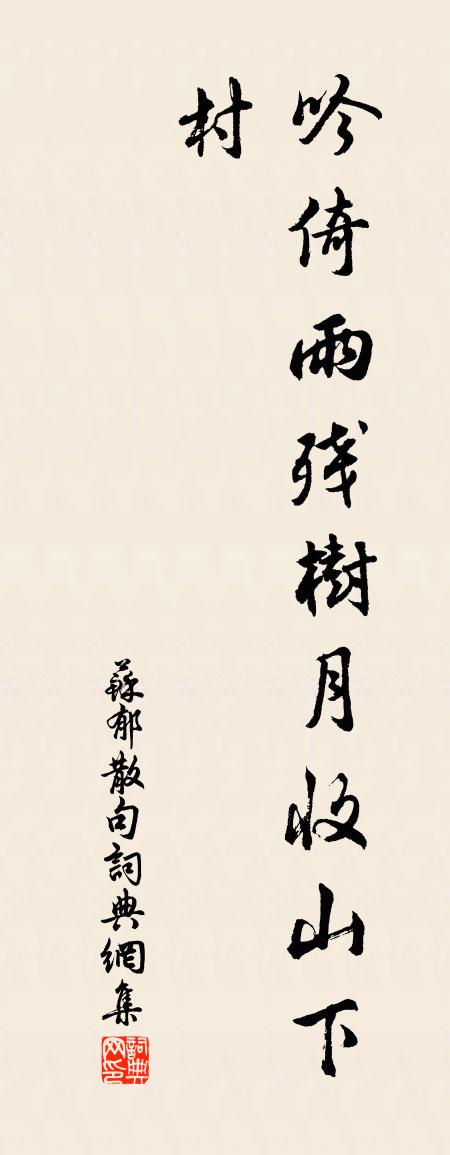 吟倚雨残樹月收山下
村
蘇郁散句詞典網集
詞典网印